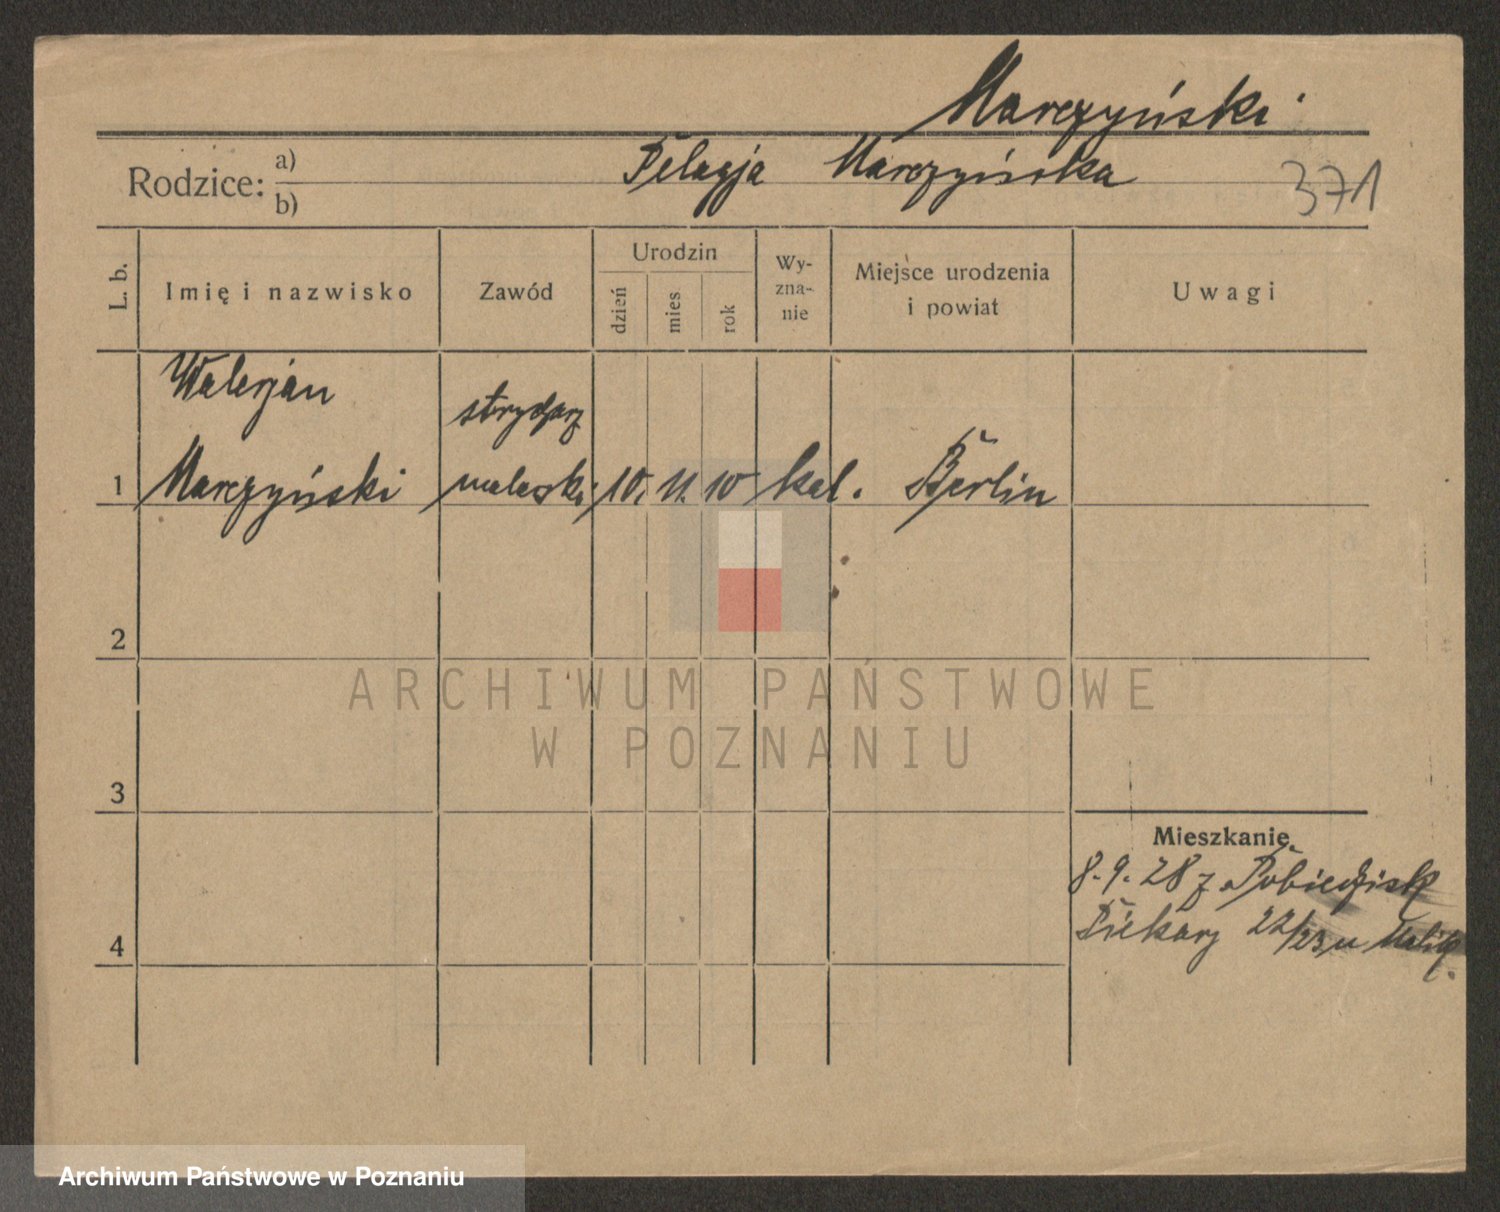 Marczyński
Rodzice: a)
b)
Pelagja Marczyńska
371
L. b.
Imię i nazwisko
Zawód
Urodzin
dzień
mies
rok
Wy-
zna-
nie
Miejsce urodzenia
i powiat
Uwagi
Walerjan
1 Marczyński
10. 11. 10 kat. Berlin
2
3
4
Mieszkanie
8. 9. 28 z Pobiedzisk
Piekary 22/23 u
ARCHIWUM PAŃSTWOWE
W POZNANIU
Archiwum Państwowe w Poznaniu